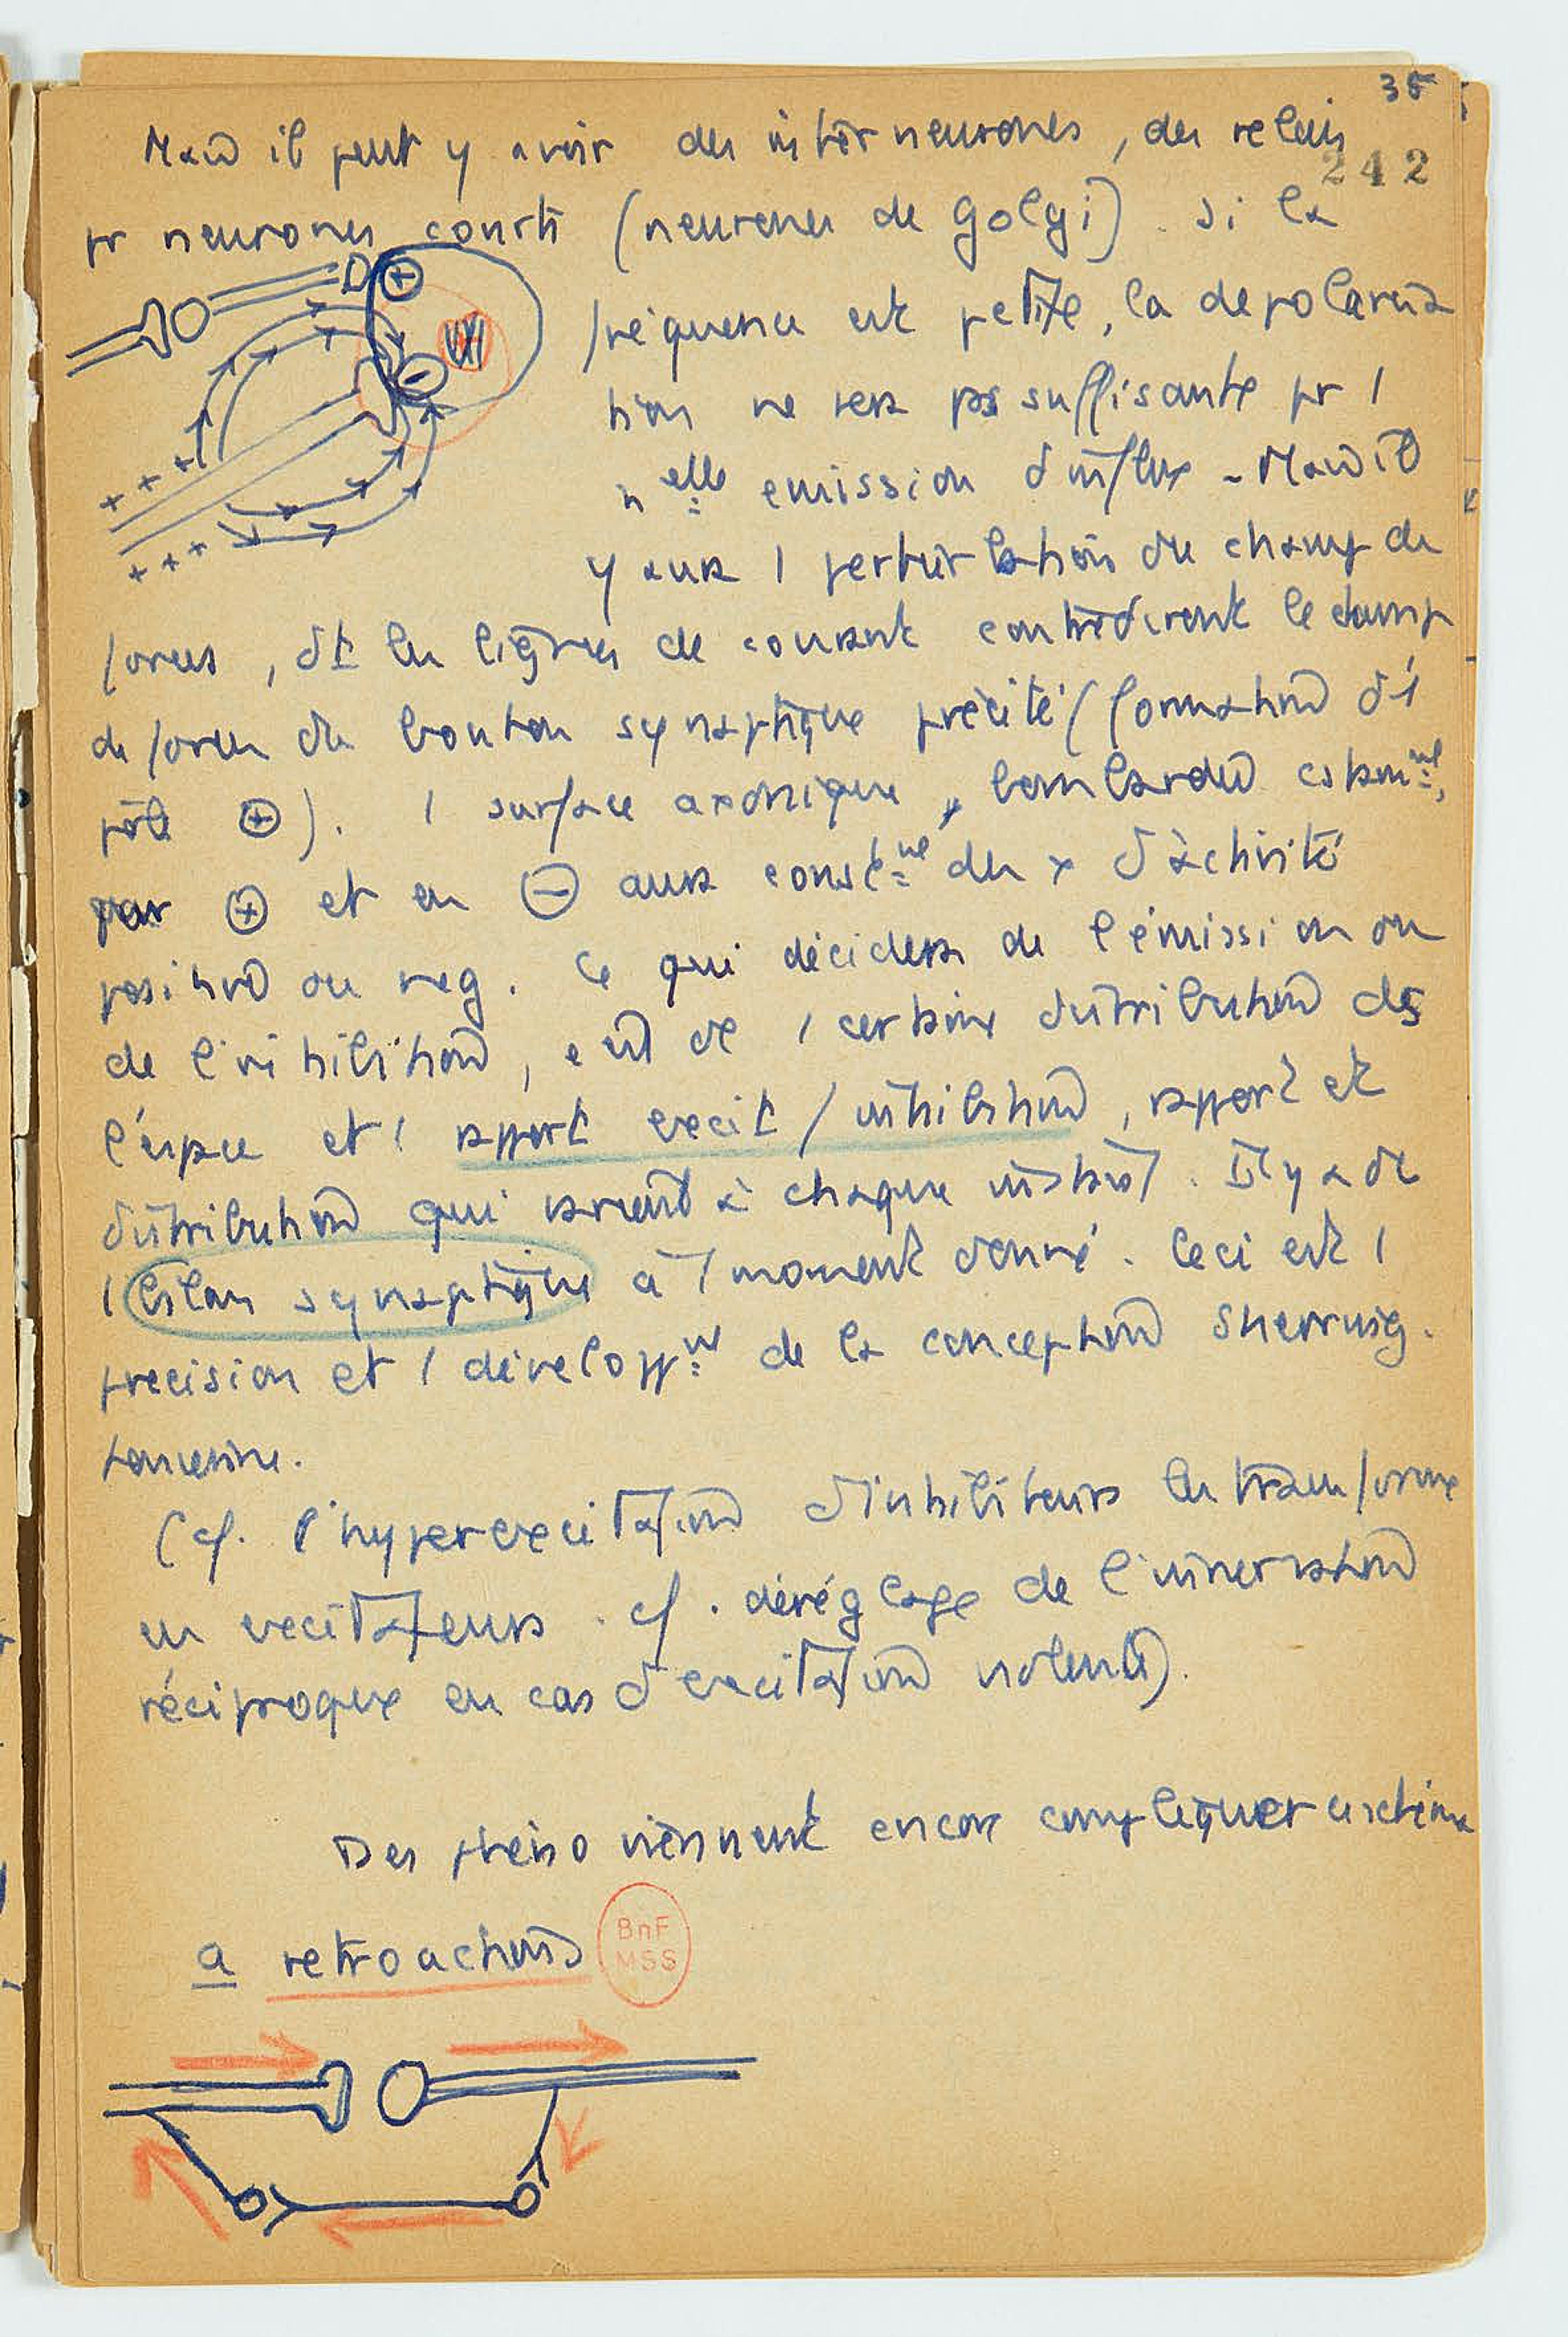 35
242
Mais il peut y avoir des interneurones, des relais
pr neurones courts (neurones de Golgi). Si la
fréquence est petite, la depolarisa
tion ne sera pas suffisante pr 1
nelle emission d'influx - Mais il
y aura 1 perturbation du champ de
forces, dt les lignes de courant contrediront le champ
de forces du bouton synaptique précité (formation d'1
pôle ⊕). 1 surface axonique, bombardée
par ⊕ et en ⊖ aura des x d'activité
positive ou neg. Ce qui décidera de l'émission ou
de l'inhibition, c'est dc 1 certaine distribution ds
l'espace et 1 rapport excit / inhibition, rapport et
distribution qui varient à chaque instant. Il y a dc
1 bilan synaptique à 1 moment donné. Ceci est 1
precision et 1 developpnt de la conception Sherring-
tonienne.
(cf. l'hyperexcitation d'inhibiteurs les transforme
en excitateurs. cf. déréglage de l'innervation
réciproque en cas d'excitation violente).
Des phéno viennent encore compliquer ce schéma
a retroactions
BnF
MSS